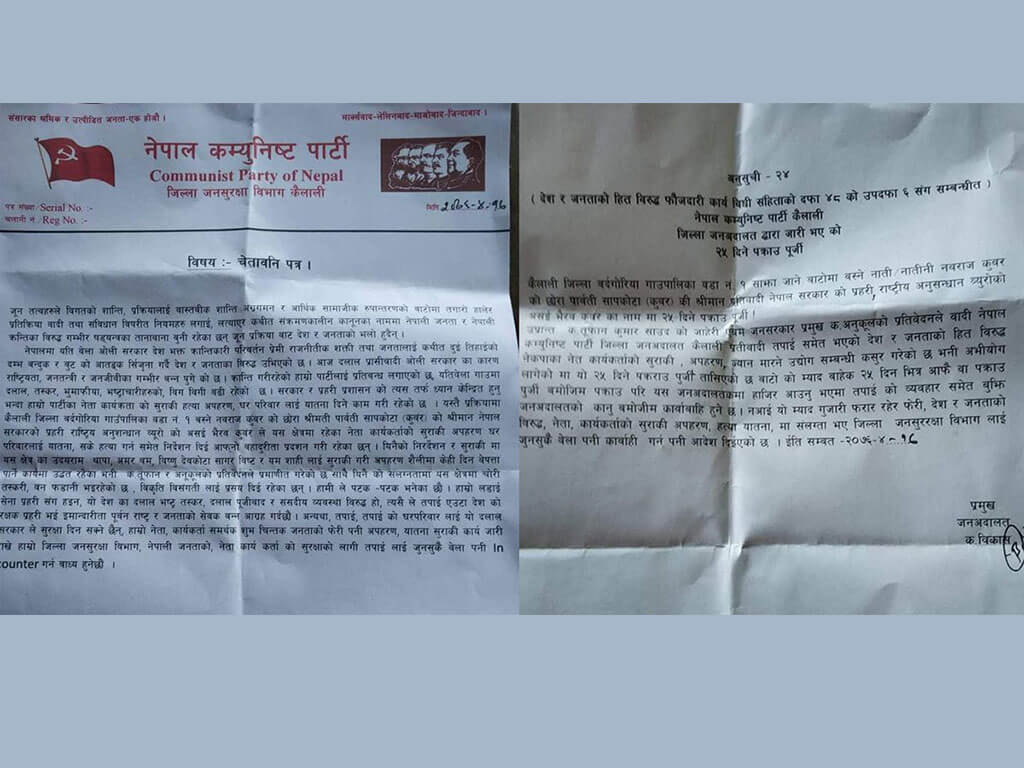 संसारका श्रमिक र उत्पीडित जनता-एक होऔं ।
मार्क्सवाद-लेनिनवाद-माओवाद-जिन्दावाद ।
नेपाल कम्युनिष्ट पार्टी
Communist Party of Nepal
जिल्ला जनसुरक्षा विभाग कैलाली
पत्र संख्या/Serial No. :-
चलानी नं./Reg No. :-
मिति २०७६-४-१६
विषय :- चेतावनि पत्र ।
जून तत्वहरुले विगतको शान्ति, प्रक्रियालाई वास्तवीक शान्ति अग्रगमन र आर्थिक सामाजीक रुपान्तरणको बाटोमा तगारो हालेर
प्रतिक्रिया वादी तथा संविधान विपरीत नियमहरु लगाई, लत्याएर कथीत संक्रमणकालीन कानूनका नाममा नेपाली जनता र नेपाली
क्रन्तिका विरुद्व गम्भीर षड्यन्त्रका तानावाना बुनी रहेका छन् जून प्रक्रिया बाट देश र जनताको भलो हुदैन् ।
नेपालमा यति बेला ओली सरकार देश भक्त क्रान्तिकारी परिवर्तन प्रेमी राजनीतीक शाक्ती तथा जनतालाई कथीत दुई तिहाईको
दम्भ बन्दुक र बुट को आतङ्क सिंर्जुना गर्दै देश र जनताका विरुद्व उभिएको छ । आज दलाल प्रासीवादी ओली सरकार का कारण
राष्ट्रियता, जनतन्त्री र जनजीवीका गम्भीर बन्न पुगे को छ । क्रान्ति गरीरहेको हाम्रो पार्टीलाई प्रतिबन्ध लगाएको छ, यतिवेला गाउमा
दलाल, तस्कर, भुमाफीया, भष्ट्राचारीहरुको, विग विगी बढी रहेको छ । सरकार र प्रहरी प्रशासन को त्यस तर्फ ध्यान केन्द्रित हुनु
भन्दा हाम्रो पार्टीका नेता कार्यकता को सुराकी हत्या अपहरण, घर परिवार लाई यातना दिने काम गरी रहेको छ । यस्तै प्रक्रियामा
कैलाली जिल्ला वर्दगोरिया गाउपालिका वडा नं. १ बस्ने नवराज कुवर को छोरा श्रीमती पार्वती सापकोटा (कुवर) को श्रीमान नेपाल
सरकारको प्रहरी राष्ट्रिय अनुशन्धान व्यूरो को असई भैरव कुवर ले यस क्षेत्रमा रहेका नेता कार्यकर्ताको सुराकी अपहरण घर
परिवारलाई यातना, सके हत्या गर्न समेत निर्देशन दिई आफ्नो वहादुरीता प्रदर्शन गरी रहेका छन् । यिनैको निर्देशन र सुराकी मा
यस क्षेत्र का उदयराम थापा, अमर वम, विष्णु देवकोटा सागर विष्ट र यम शाही लाई सुराकी गरी अपहरण शैलीमा केही दिन बेपत्ता
पार्ने कार्यमा उद्धत रहेका भनी क.तूफान र अनुकूलको प्रतिवेदनले प्रमाणीत गरेको छ साथै यिनै को संलग्नतामा यस क्षेत्रमा चोरी
तस्करी, वन फडानी भइरहेको छ , विकृति विसंगती लाई प्रसय दिई रहेका छन् । हामी ले पटक -पटक भनेका छौ । हाम्रो लडाई
सेना प्रहरी संग हइन, यो देश का दलाल भष्ट् तस्कर, दलाल पूजीवाद र ससदीय व्यवस्था विरुद्व हो, त्यसै ले तपाई एउटा देश को
रक्षक प्रहरी भई इमान्दारीता पूर्वन राष्ट् र जनताको सेवक बन्न आग्रह गर्दछौ । अन्यथा, तपाई, तपाई को घरपरिवार लाई यो दलाल
सरकार ले सुरक्षा दिन सक्ने छैन्, हाम्रो नेता, कार्यकर्ता समर्थक शुभ चिन्तक जनताको फेरी पनी अपहरण, यातना सुराकी कार्य जारी
राखे हाम्रो जिल्ला जनसुरक्षा विभाग, नेपाली जनताको, नेता कार्य कर्ता को सुरक्षाको लागी तपाई लाई जुनसुकै वेला पनी In
counter गर्न वाध्य हुनेछौ ।
अनुसुची - २४
( देश र जनताको हित बिरुद्ध फौजदारी कार्य बिधी संहिताको दफा ४८ को उपदफा ६ संग सम्बन्धीत )
नेपाल कम्युनिष्ट पार्टी कैलाली
जिल्ला जनअदालत द्वारा जारी भए को
२५ दिने पक्राउ पूर्जी
कैलाली जिल्ला बर्दगोरिया गाउपालिका वडा नं. १ साझा जाने वाटोमा बस्ने नाती/नातीनी नवराज कुवर
को छोरा पार्वती सापकोटा (कुवर) की श्रीमान प्रतिवादी नेपाल सरकार को प्रहरी, राष्ट्रीय अनुसन्धान व्युरोको
असई भैरव कुवर का नाम मा २५ दिने पक्राउ पूर्जी ।
उप्रान्त क.तूफान कुमार साउद को जाहेरी
कम्युनिष्ट पार्टी जिल्ला जनअदालत कैलाली प्रतीवादी तपाई समेत भएको देश र जनताको हित बिरुद्व
नेकपाका नेता कार्यकर्ताको सुराकी , अपहरण, ज्यान मारने उद्योग सम्बन्धी कसुर गरेको छ भनी अभीयोग
लागेको मा यो २५ दिने पक्राउ पूर्जी तासिएको छ बाटो को म्याद बाहेक २५ दिन भित्र आफै वा पक्राउ
पूर्जी बमोजिम पक्राउ परि यस जनअदालतमा हाजिर आउनु भएमा तपाई को व्यवहार समेत बुझि
जनअदालतको कानु बमोजीम कार्यवाहि हुने छ । नआई यो म्याद गुजारी फरार रहेर फेरी, देश र जनताको
विरुद्ध, नेता, कार्यकर्ताको सुराकी अपहरण, हत्या यातना, मा संलग्ता भए जिल्ला जनसुरक्षा विभाग लाई
जुनसुकै वेला पनी कार्वाही गर्न पनी आदेश दिईएको छ । ईति सम्बत -२०७६-४-१६
प्रमुख
जनअदालत
क.विकास